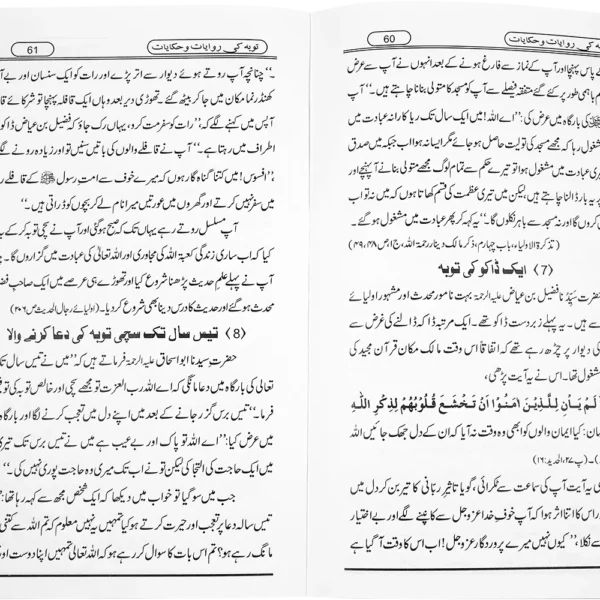 60
ـہ کی روایات وحکایات
کے پاس پہنچا اور آپ کے نماز سے فارغ ہونے کے بعد انہوں نے آپ سے عرض
م باہمی طور پر کئے گئے متفقہ فیصلے سے آپ کو مسجد کا متولی بنانا چاہتے ہیں۔‘‘ آپ
کی بارگاہ میں عرض کی: ’’اے اللہ! میں ایک سال تک ریا کارانہ عبادت میں
مشغول رہا کہ مجھے مسجد کی تولیت حاصل ہو جائے مگر ایسا نہ ہوا اب جبکہ میں صدق
تیری عبادت میں مشغول ہوا تو تیرے حکم سے تمام لوگ مجھے متولی بنانے آ پہنچے اور
پر یہ بار ڈالنا چاہتے ہیں، لیکن میں تیری عظمت کی قسم کھاتا ہوں کہ میں نہ تو اب
کروں گا اور نہ مسجد سے باہر نکلوں گا۔‘‘ یہ کہہ کر پھر عبادت میں مشغول ہو گئے۔
(تذکرۃ الاولیاء، باب چہارم، ذکر مالک دینار رحمۃ اللہ، ج۱، ص ۴۸، ۴۹)
﴿7﴾ ایک ڈاکو کی توبہ
حضرت سیِّدُنا فضیل بن عیاض علیہ الرحمۃ بہت نامور محدث اور مشہور اولیائے
سے ہیں۔ یہ پہلے زبردست ڈاکو تھے۔ ایک مرتبہ ڈاکہ ڈالنے کی غرض سے
کی دیوار پر چڑھ رہے تھے کہ اتفاقاً اس وقت مالک مکان قرآن مجید کی
مشغول تھا۔ اس نے یہ آیت پڑھی،
اَلَمْ یَاْنِ لِلَّذِیْنَ اٰمَنُوْۤا اَنْ تَخْشَعَ قُلُوْبُهُمْ لِذِكْرِ اللّٰهِ
مان: کیا ایمان والوں کو ابھی وہ وقت نہ آیا کہ ان کے دل جھک جائیں اللہ
(پ ۲۷، الحدید: ۱۶)
ہی یہ آیت آپ کی سماعت سے ٹکرائی، گویا تاثیر ربانی کا تیر بن کر دل میں
اور اس کا اتنا اثر ہوا کہ آپ خوفِ خدا عزوجل سے کانپنے لگے اور بے اختیار
سے نکلا، ’’کیوں نہیں میرے پروردگار عزوجل! اب اس کا وقت آ گیا ہے
توبہ کی روایات وحکایات
61
۔‘‘ چنانچہ آپ روتے ہوئے دیوار سے اتر پڑے اور رات کو ایک سنسان اور بے آ
کھنڈر نما مکان میں جا کر بیٹھ گئے۔ تھوڑی دیر بعد وہاں ایک قافلہ پہنچا تو شرکائے قا
آپس میں کہنے لگے کہ، ’’رات کو سفر مت کرو، یہاں رک جاؤ کہ فضیل بن عیاض ڈاکو
اطراف میں رہتا ہے۔‘‘ آپ نے قافلے والوں کی باتیں سنیں تو اور زیادہ رونے لگے
’’افسوس! میں کتنا گناہ گار ہوں کہ میرے خوف سے امتِ رسول ﷺ کے قافلے
میں سفر نہیں کرتے اور گھروں میں عورتیں میرا نام لے کر بچوں کو ڈراتی ہیں۔‘‘
آپ مسلسل روتے رہے یہاں تک کہ صبح ہو گئی اور آپ نے سچی توبہ کر کے یہ
کیا کہ اب ساری زندگی کعبۃ اللہ کی مجاوری اور اللہ تعالیٰ کی عبادت میں گزاروں گا۔
آپ نے پہلے علم حدیث پڑھنا شروع کیا اور تھوڑے ہی عرصے میں ایک صاحبِ فضـ
محدث ہو گئے اور حدیث کا درس دینا بھی شروع کر دیا۔ (اولیائے رجال الحدیث ص ۲۰۶)
﴿8﴾ تیس سال تک سچی توبہ کی دعا کرنے والا
حضرت سیِّدنا ابو اسحاق علیہ الرحمۃ فرماتے ہیں کہ ’’میں نے تیس سال
تعالیٰ کی بارگاہ میں دعا مانگی کہ اے اللہ رب العزت تو مجھے سچی اور خالص توبہ کی تو
فرما۔‘‘ تیس برس گزر جانے کے بعد میں اپنے دل میں تعجب کرنے لگا اور بارگاہ
میں عرض کیا: ’’اے اللہ تو پاک اور بے عیب ہے میں نے تیس برس تک تیری
میں ایک حاجت کی التجا کی لیکن تو نے اب تک میری وہ حاجت پوری نہیں کی۔‘‘
جب میں سو گیا تو خواب میں دیکھا کہ ایک شخص مجھ سے کہہ رہا تھا: ’’
تیس سالہ دعا پر تعجب اور حیرت کرتے ہو کیا تمہیں یہ نہیں معلوم کہ تم اللہ سے کتنی
مانگ رہے ہو؟ تم اس بات کا سوال کر رہے ہو کہ اللہ تعالیٰ تمہیں اپنا دوست او